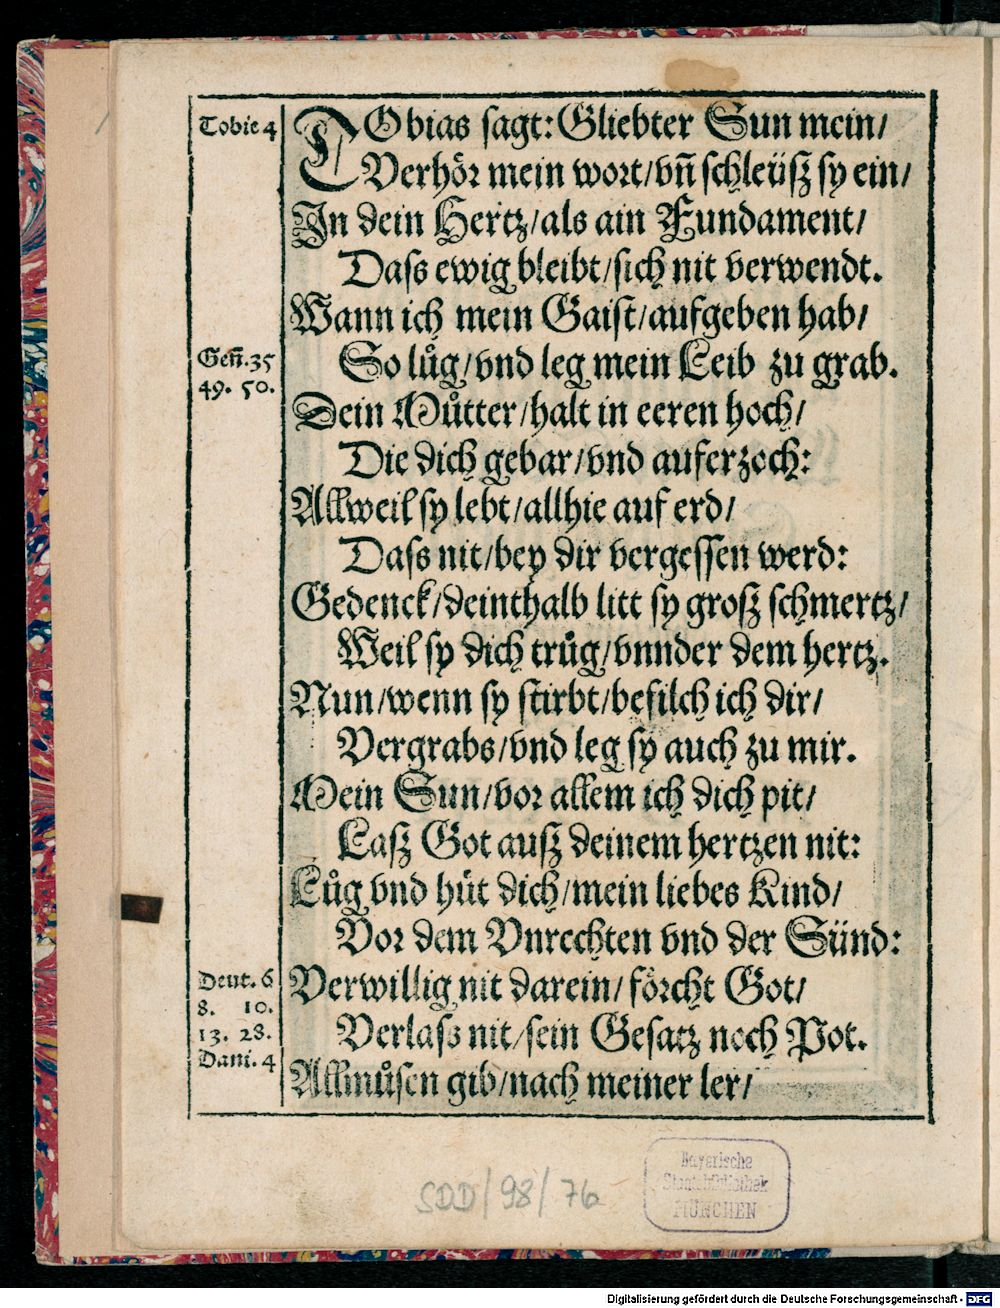 Tobie 4
TObias sagt: Gliebter Sun mein/
Verhör mein wort/vñ schleüsz sy ein/
In dein Hertz/als ain Fundament/
Dass ewig bleibt/sich nit verwendt.
Wann ich mein Gaist/aufgeben hab/
Geñ.35
49. 50.
So lůg/vnd leg mein Leib zu grab.
Dein Můtter/halt in eeren hoch/
Die dich gebar/vnd auferzoch:
Allweil sy lebt/allhie auf erd/
Dass nit/bey dir vergessen werd:
Gedenck/deinthalb litt sy grosz schmertz/
Weil sy dich trůg/vnnder dem hertz.
Nun/wenn sy stirbt/befilch ich dir/
Vergrabs/vnd leg sy auch zu mir.
Mein Sun/vor allem ich dich pit/
Lasz Got ausz deinem hertzen nit:
Lůg vnd hüt dich/mein liebes Kind/
Vor dem Vnrechten vnd der Sünd:
Deut. 6
8. 10.
13. 28.
Dani. 4
Verwillig nit darein/förcht Got/
Verlass nit/sein Gesatz noch Pot.
Allmůsen gib/nach meiner ler/
Bayerische
Staatsbibliothek
MÜNCHEN
SDD/98/76
Digitalisierung gefördert durch die Deutsche Forschungsgemeinschaft - DFG